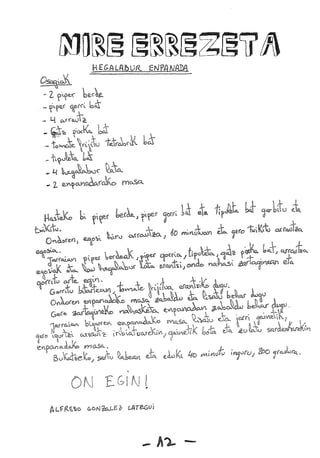 NIRE ERREZETA
HEGALABUR ENPANADA
Osagiak
- 2 piper berde
- piper gorri bat
- 4 arrautz
- Gatz pixka bat
- tomate frijitu tetrabrik bat
- tipuleta bat
- 4 hegalabur lata
- 2 enpanadarako masa
Hasteko bi piper berde, piper gorri bat eta tipuleta bat garbitu eta
txikitu.
Ondoren, egosi hiru arrautza, 10 minutuan eta gero txikitu arrautza
egosia.
Jarraian piper berdeak, piper gorria, tipuleta, gatz pixka bat, arrautza
egosiak eta lau hegalabur lata erantsi, ondo nahasi zartaginean eta
gorritu arte egin.
Gorritu bitartean, tomate frijitua erantsiko dugu.
Ondoren enpanadako masa zabaldu eta lisatu behar dugu
Gero zartagineko nahasketa enpanadan zabaldu behar dugu.
Jarraian bigarren enpanadako masa lisatu eta jarri gainetik,
gero igurtzi arrautz irabiatuarekin, gainetik bota eta zulatu sardexkarekin
enpanadako masa.
Bukatzeko, sartu labean eta eduki 40 minutu inguru, 200 gradura.
ON EGIN!
ALFREDO GONZALEZ LATEGUI
- 12 -